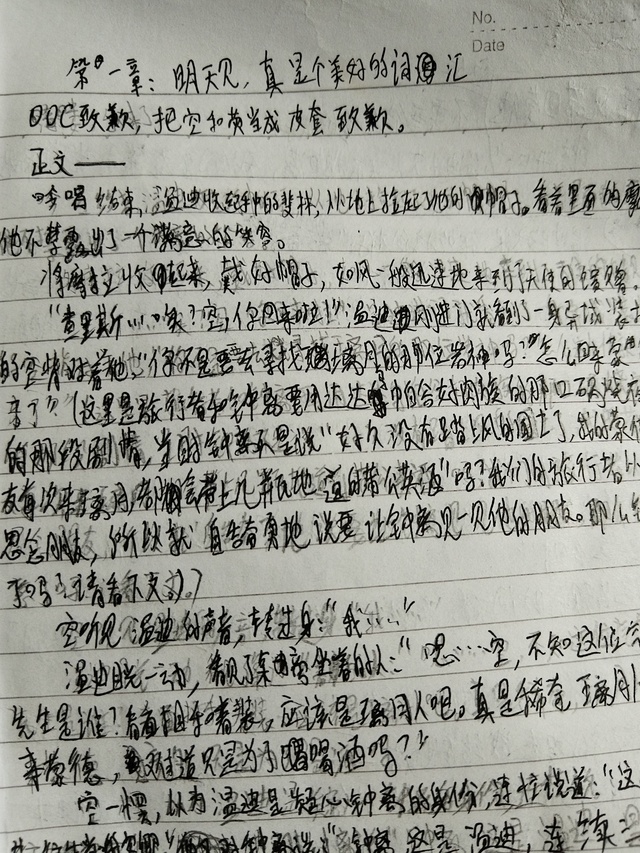 No.
Date
第一章：明天见，真是个美好的词汇
OOC致歉，把空和荧当成皮套致歉。
正文——
吟唱结束，温迪收起手中的斐林，从地上捡起了他的帽子。看着里面的摩
他不禁露出了一个满意的笑容。
将摩拉收起来，戴好帽子，如风一般迅速地来到了天使的馈赠。
“查里斯……唉？空，你回来啦！”温迪刚进门就看到了一身异域装
的空背对着他，“你不是要去寻找璃月的那位岩神吗？怎么回来蒙
来了？（这里是旅行者和钟离要用达达的帕合好肉族的那口砂烧
的那段剧情，当时钟离不是说“好久没有踏上风的国土了，我的蒙
友每次来璃月，都会带上几瓶当地的蒲公英酒”吗？我们的旅行者
思念朋友，所以就自告奋勇地说要让钟离见一见他的朋友。那么
了吗？请看下文：）。）
空听见温迪的声音，转过身：“我……”
温迪眼一动，看见了桌旁坐着的人：“嗯……空，不知这位
先生是谁？看着着装，应该是璃月人吧。真是稀奇，璃月
来蒙德，难道只是为了喝喝酒吗？”
空一愣，以为温迪是疑心钟离的身份，连忙说道：“这
钟离，这是温迪，